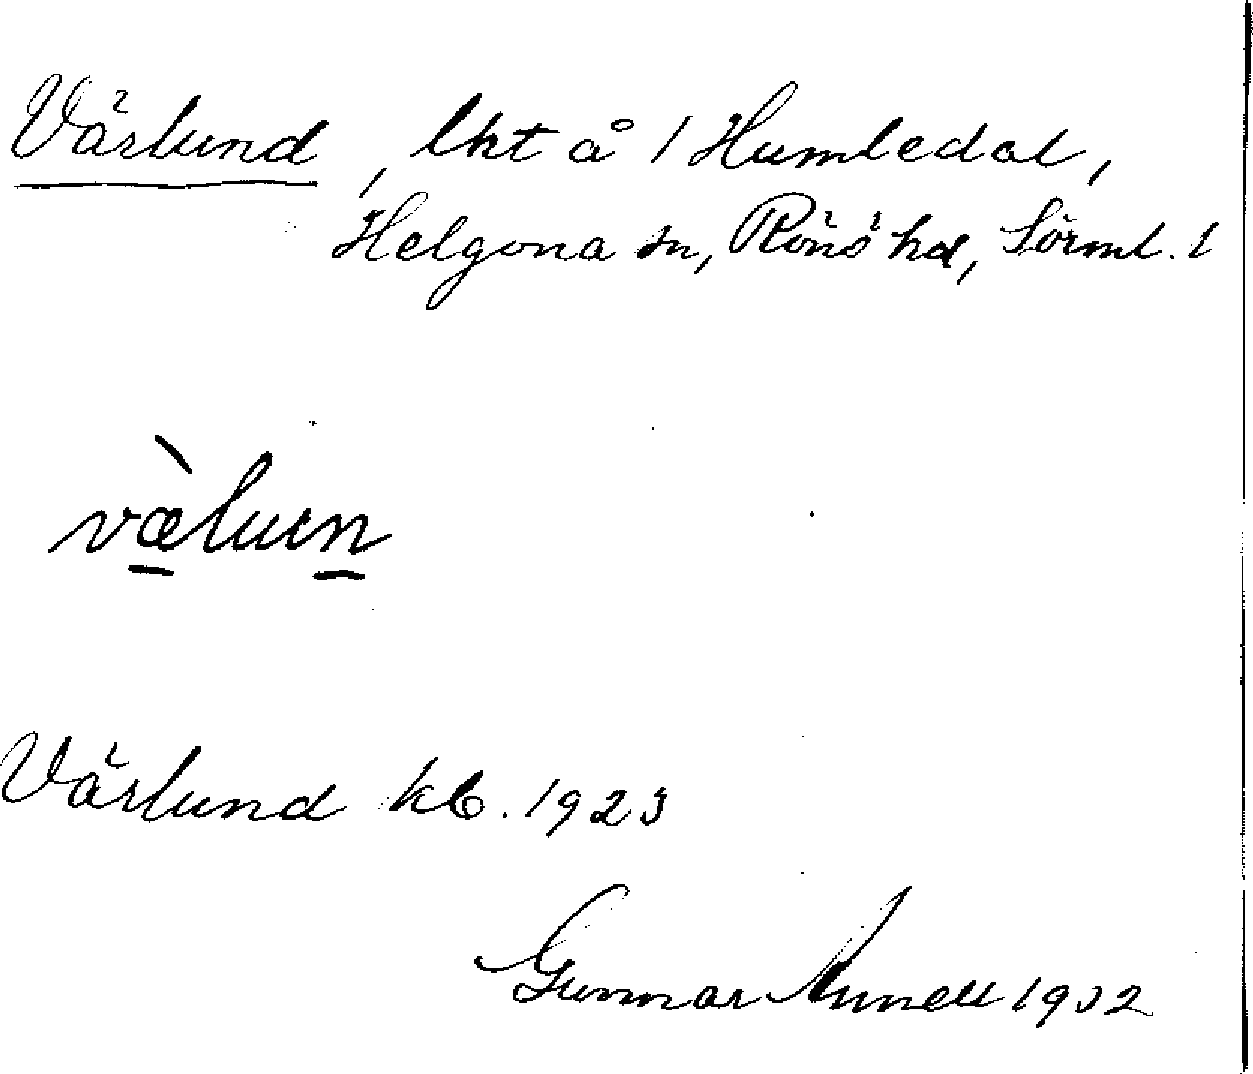 Värlund, lht å 1 Humledal,
Helgona sn, Rönö hd, Sörml. l
vælurn
Värlund kb. 1923
Gunnar 1932